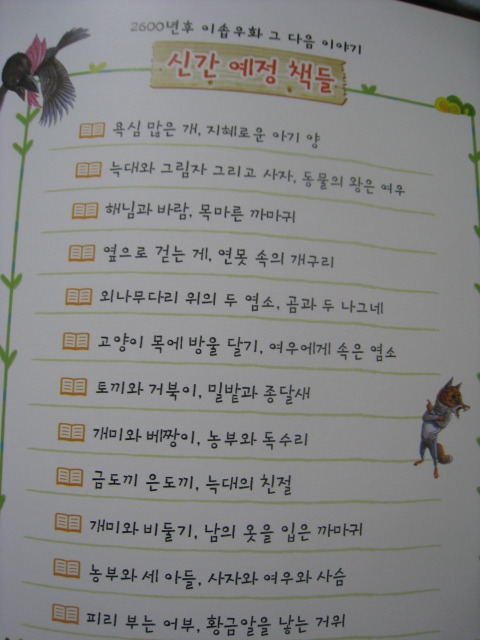 2600년후 이솝우화 그 다음 이야기
신간 예정 책들
욕심 많은 개, 지혜로운 아기 양
늑대와 그림자 그리고 사자, 동물의 왕은 여우
해님과 바람, 목마른 까마귀
옆으로 걷는 게, 연못 속의 개구리
외나무다리 위의 두 염소, 곰과 두 나그네
고양이 목에 방울 달기, 여우에게 속은 염소
토끼와 거북이, 밀밭과 종달새
개미와 베짱이, 농부와 독수리
금도끼 은도끼, 늑대의 친절
개미와 비둘기, 남의 옷을 입은 까마귀
농부와 세 아들, 사자와 여우와 사슴
피리 부는 어부, 황금알을 낳는 거위